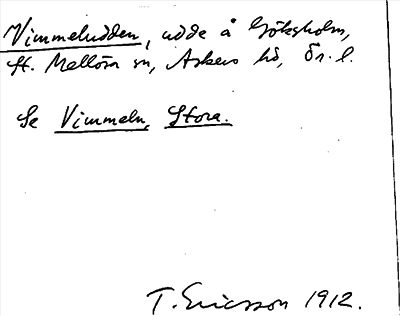 Vimmeludden, udde å Göksholm,
St. Mellösa sn, Askers hd, Ör. l.
Se Vimmeln, Stora.
T. Ericsson 1912.